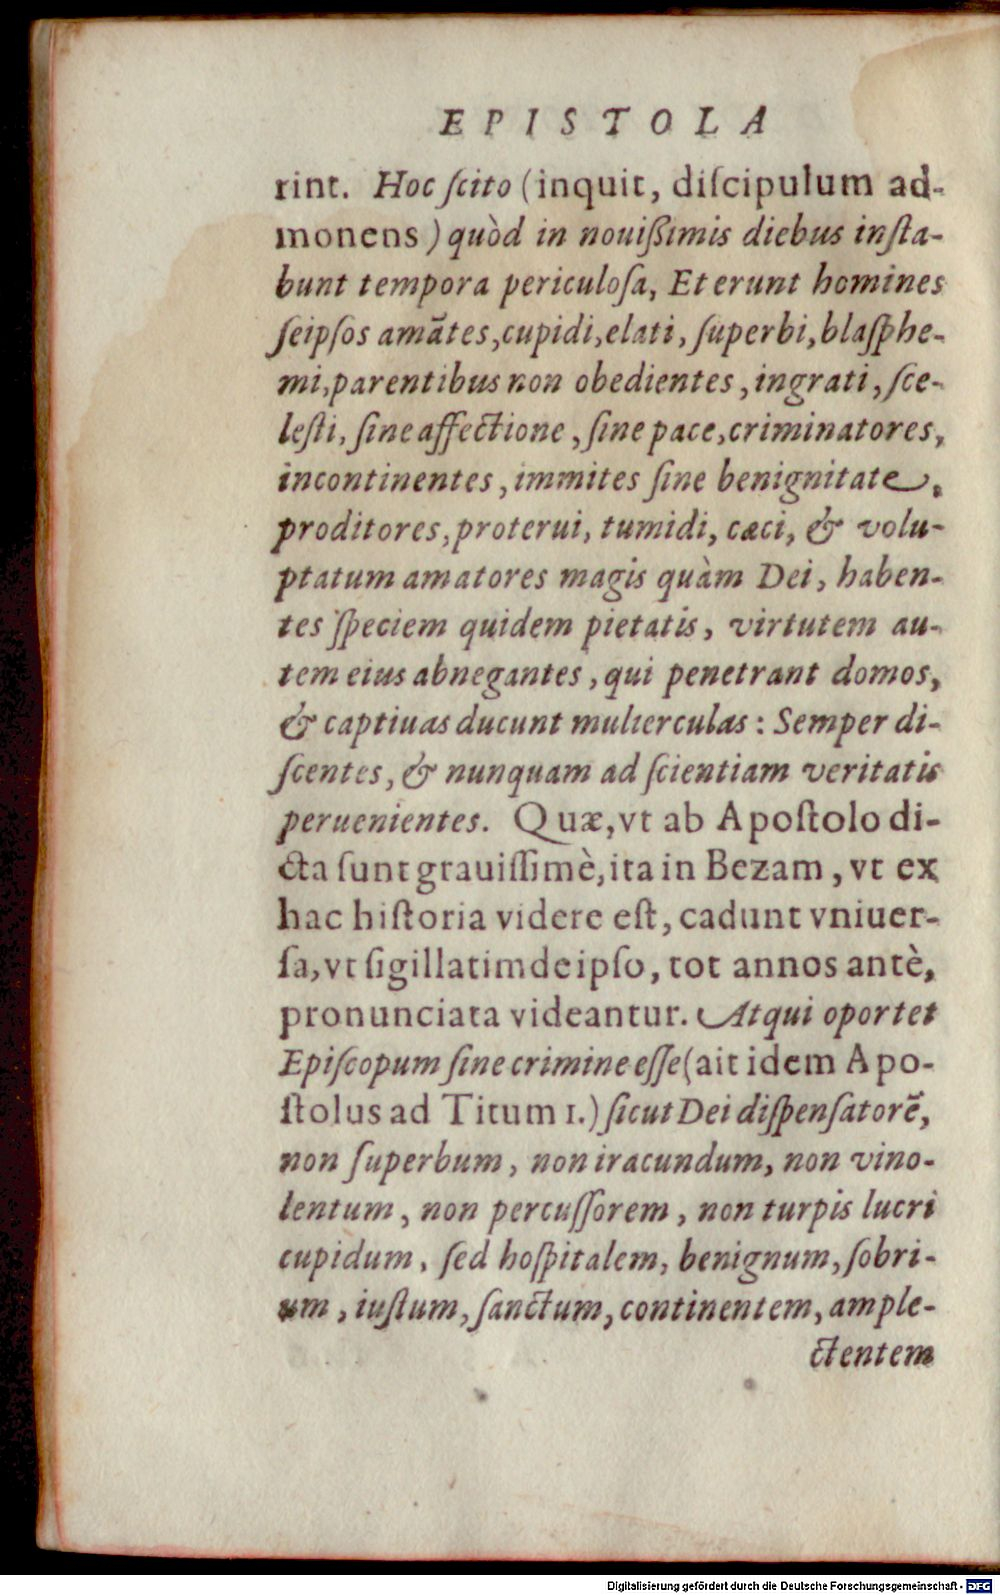 EPISTOLA
rint. Hoc ſcito (inquit, diſcipulum ad-
monens) quòd in nouißimis diebus inſta-
bunt tempora periculoſa, Et erunt homines
ſeipſos amãtes, cupidi, elati, ſuperbi, blaſphe-
mi, parentibus non obedientes, ingrati, ſce-
leſti, ſine affectione, ſine pace, criminatores,
incontinentes, immites ſine benignitate,
proditores, proterui, tumidi, cæci, & volu-
ptatum amatores magis quàm Dei, haben-
tes ſpeciem quidem pietatis, virtutem au-
tem eius abnegantes, qui penetrant domos,
& captiuas ducunt mulierculas: Semper di-
ſcentes, & nunquam ad ſcientiam veritatis
peruenientes. Quæ, vt ab Apoſtolo di-
cta ſunt grauiſſimè, ita in Bezam, vt ex
hac hiſtoria videre eſt, cadunt vniuer-
ſa, vt ſigillatim de ipſo, tot annos antè,
pronunciata videantur. Atqui oportet
Epiſcopum ſine crimine eſſe (ait idem Apo-
ſtolus ad Titum 1.) ſicut Dei diſpenſatorẽ,
non ſuperbum, non iracundum, non vino-
lentum, non percuſſorem, non turpis lucri
cupidum, ſed hoſpitalem, benignum, ſobri-
um, iuſtum, ſanctum, continentem, ample-
ctentem
Digitalisierung gefördert durch die Deutsche Forschungsgemeinschaft - DFG